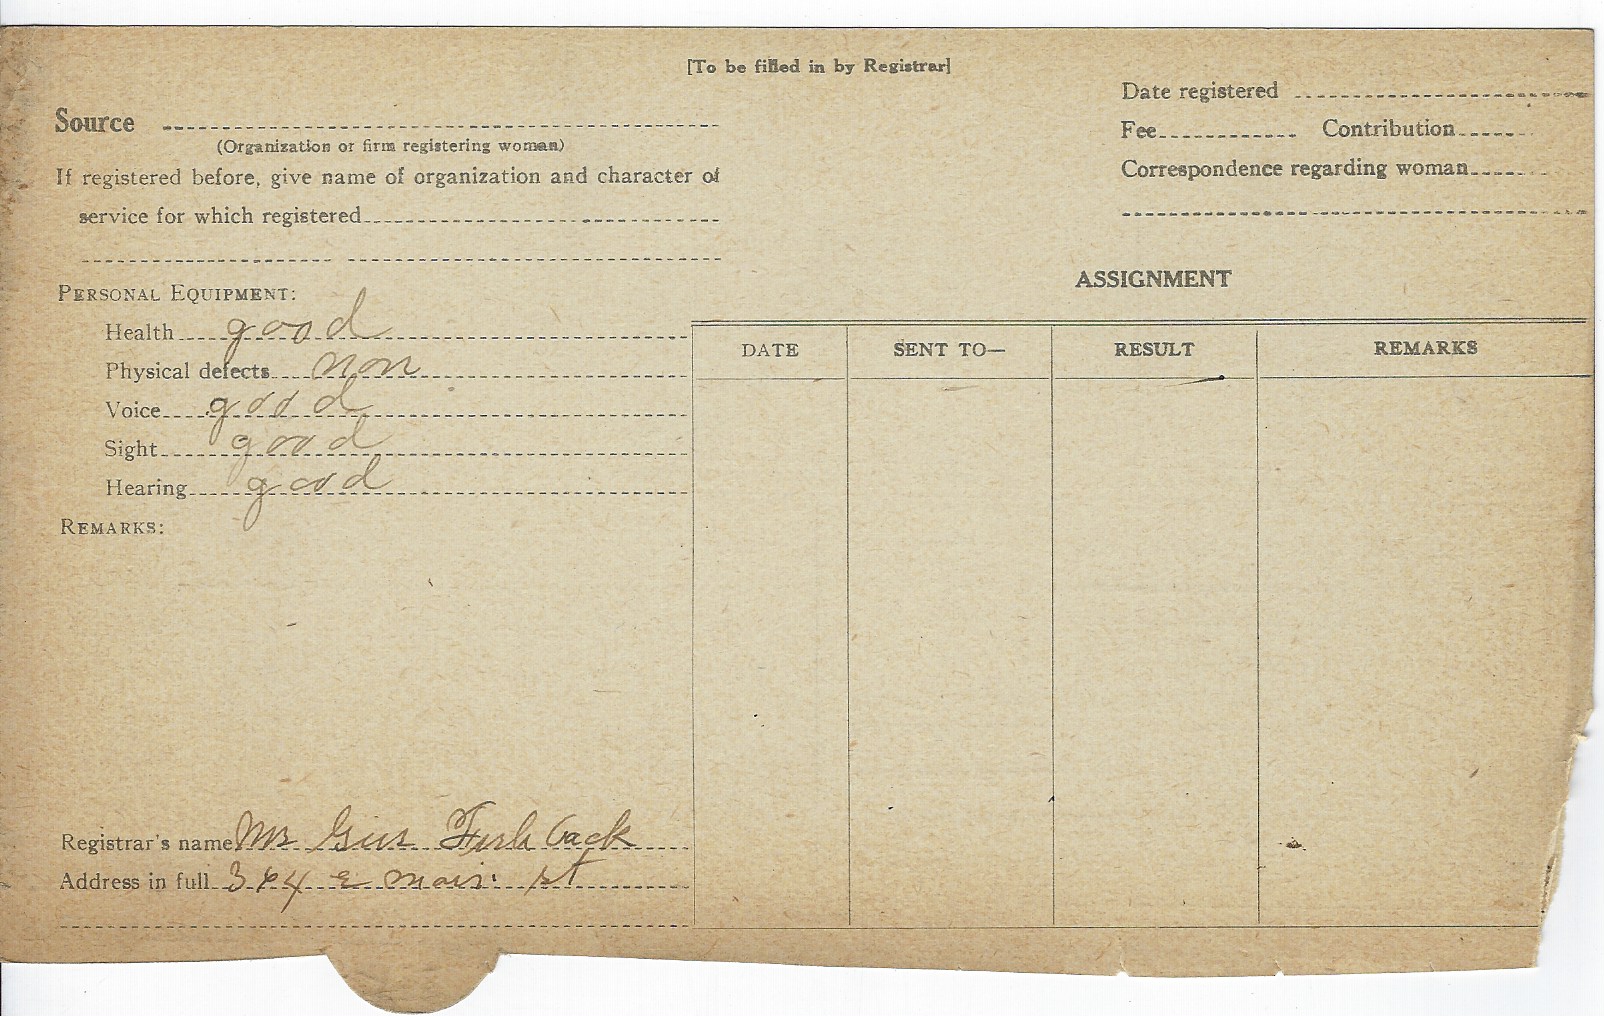 [To be filled in by Registrar]
Source
(Organization or firm registering woman)
If registered before, give name of organization and character of
service for which registered
Date registered
Fee Contribution
Correspondence regarding woman
PERSONAL EQUIPMENT:
Health good
Physical defects non
Voice good
Sight good
Hearing good
REMARKS:
Registrar's name Mrs Gus Fishback
Address in full 364 E main st
ASSIGNMENT
DATE SENT TO— RESULT REMARKS